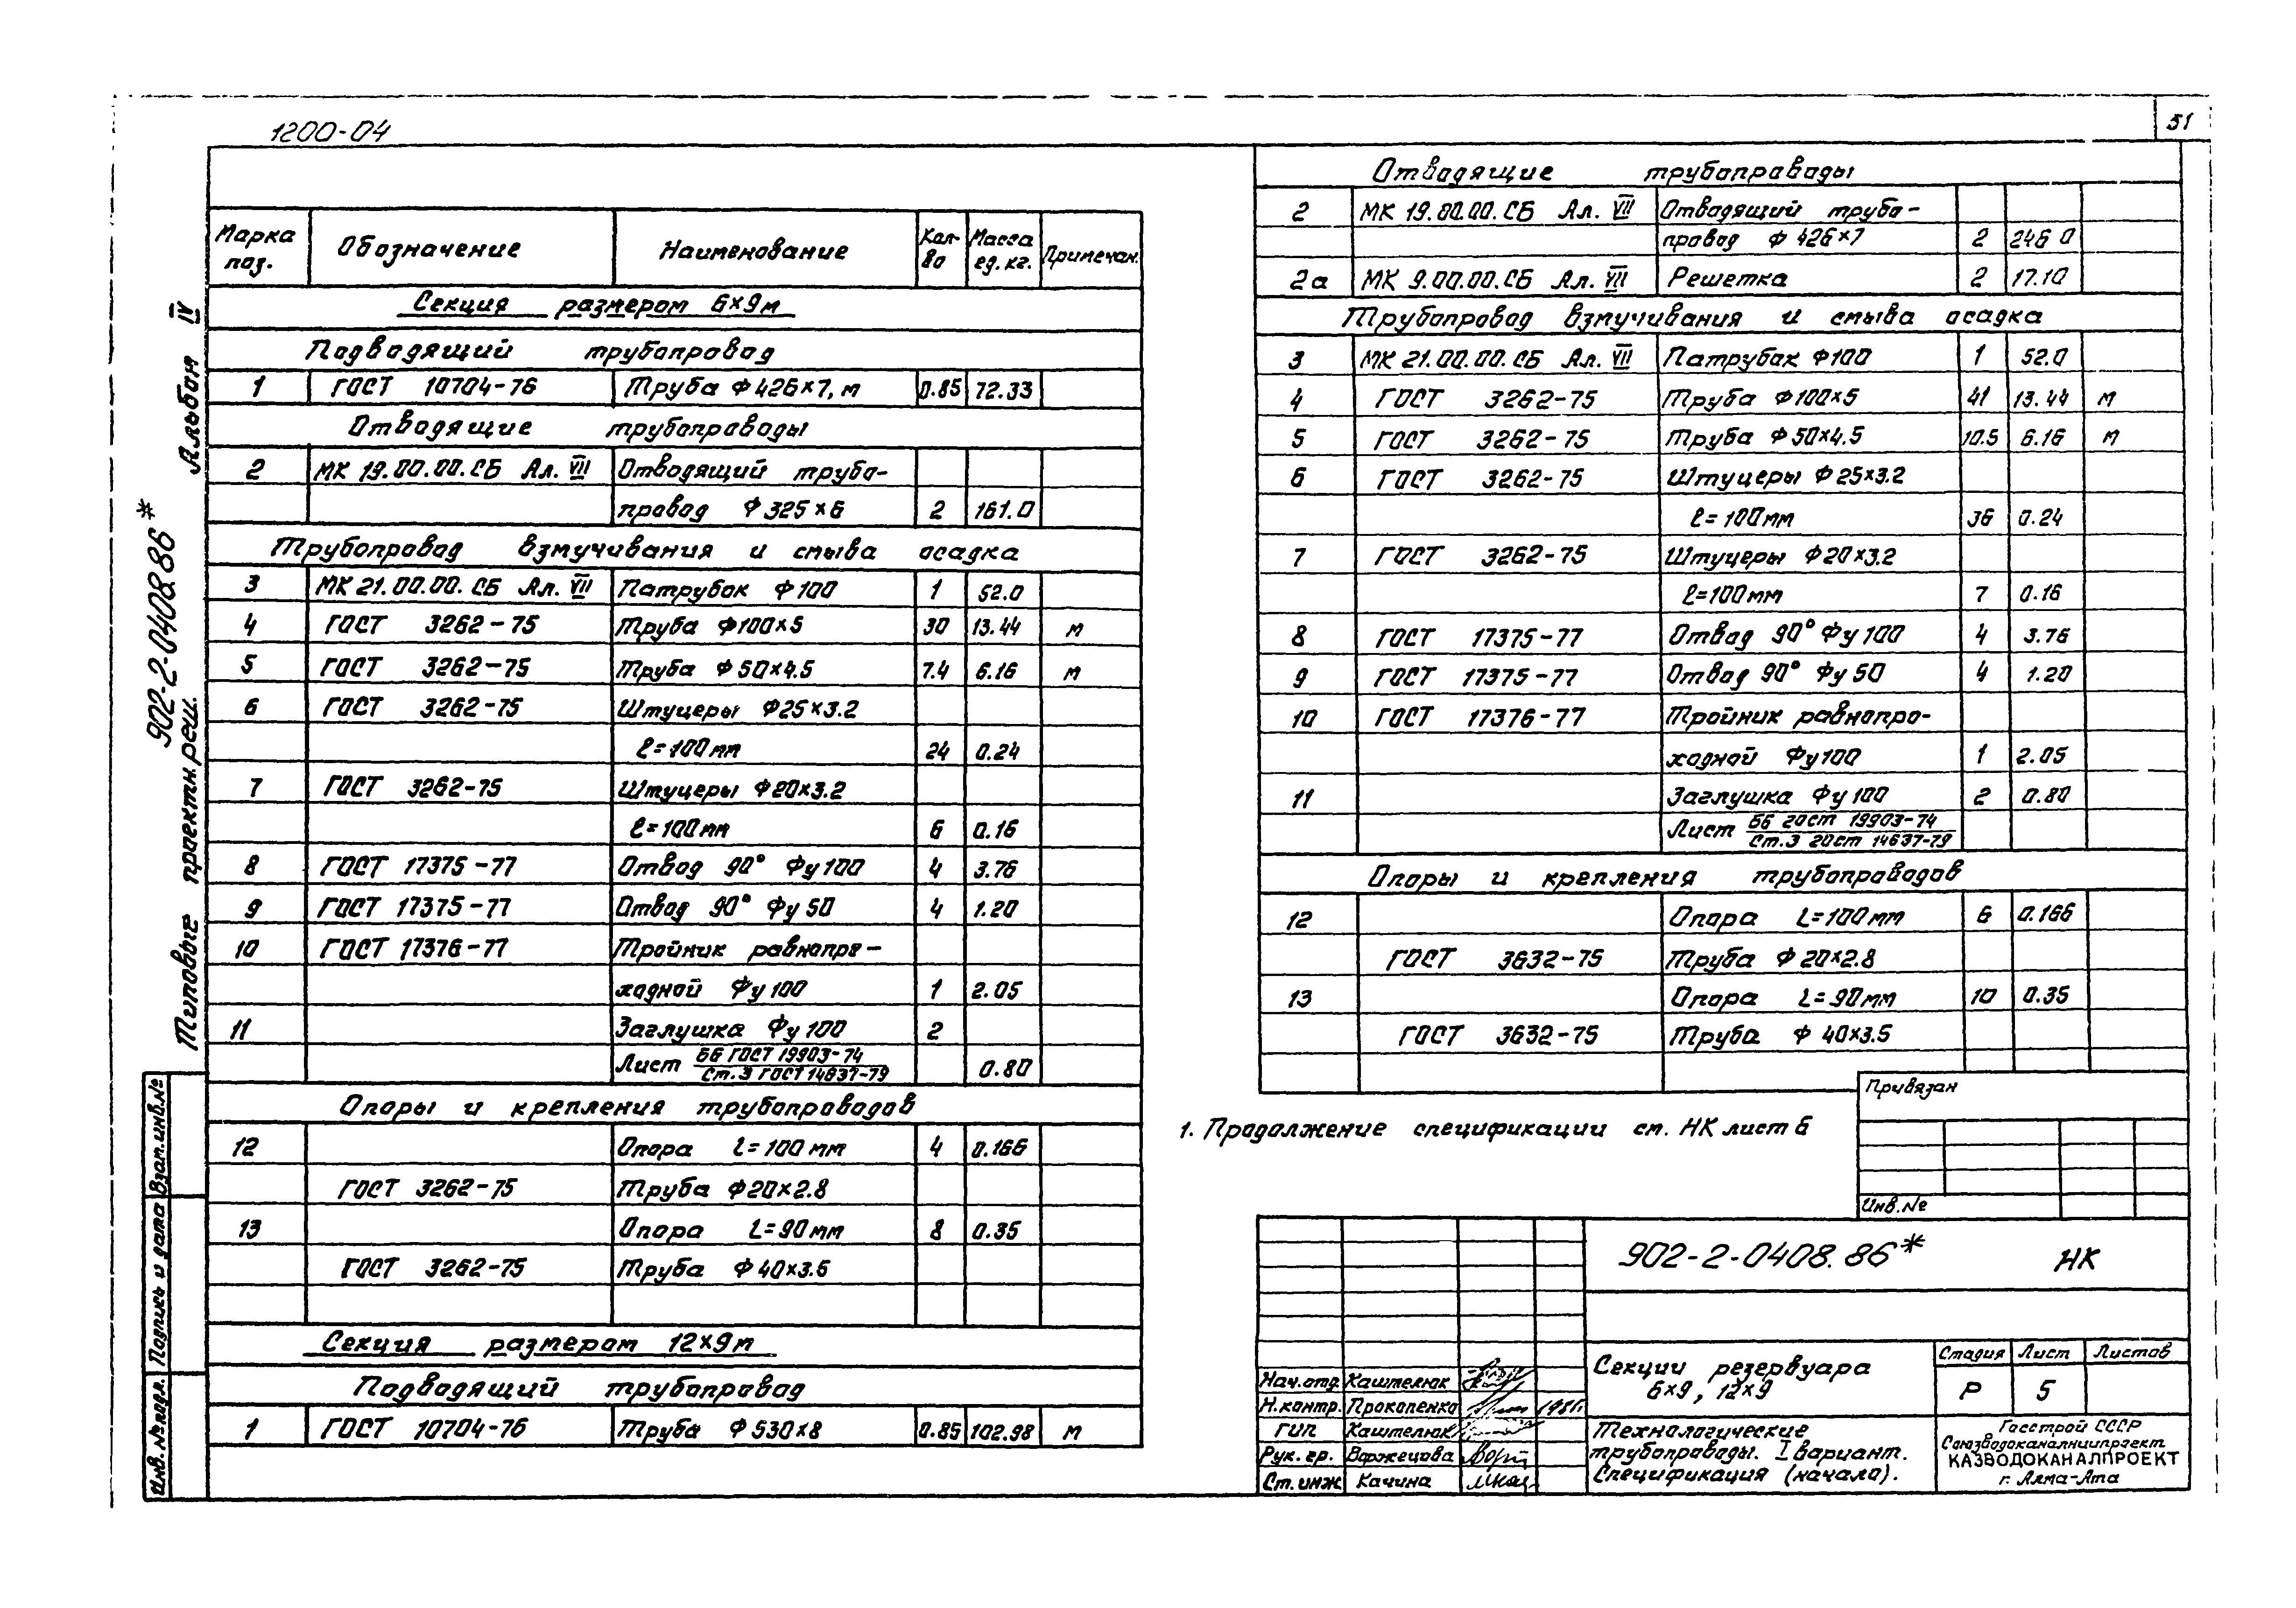 1200-04
51
Альбом IV
902-2-0408 86*
Типовые проектн. реш.
Взам.инв.№
Подпись и дата
Инв.№ подл.
Марка поз. Обозначение Наименование Кол-во Масса ед. кг. Примечан.
Секция размером 6×9м
Подводящий трубопровод
1 ГОСТ 10704-76 Труба Ф 426×7, м 0.85 72.33
Отводящие трубопроводы
2 МК 19.00.00.СБ Ал. VII Отводящий трубо-
провод Ф 325×6 2 161.0
Трубопровод взмучивания и смыва осадка
3 МК 21.00.00.СБ Ал. VII Патрубок Ф100 1 52.0
4 ГОСТ 3262-75 Труба Ф100×5 30 13.44 м
5 ГОСТ 3262-75 Труба Ф 50×4.5 7.4 6.16 м
6 ГОСТ 3262-75 Штуцеры Ф25×3.2
ℓ=100мм 24 0.24
7 ГОСТ 3262-75 Штуцеры Ф20×3.2
ℓ=100мм 6 0.16
8 ГОСТ 17375-77 Отвод 90° Фу100 4 3.76
9 ГОСТ 17375-77 Отвод 90° Фу50 4 1.20
10 ГОСТ 17376-77 Тройник равнопро-
ходной Фу100 1 2.05
11 Заглушка Фу100 2
Лист Б6 ГОСТ 19903-74 / Ст.3 ГОСТ 14637-79 0.80
Опоры и крепления трубопроводов
12 Опора L=100мм 4 0.166
ГОСТ 3262-75 Труба Ф20×2.8
13 Опора L=90мм 8 0.35
ГОСТ 3262-75 Труба Ф 40×3.6
Секция размером 12×9м
Подводящий трубопровод
1 ГОСТ 10704-76 Труба Ф 530×8 0.85 102.98 м
Отводящие трубопроводы
2 МК 19.00.00.СБ Ал. VII Отводящий трубо-
провод Ф 426×7 2 246 0
2а МК 9.00.00.СБ Ал. VII Решетка 2 17.10
Трубопровод взмучивания и смыва осадка
3 МК 21.00.00.СБ Ал. VII Патрубок Ф100 1 52.0
4 ГОСТ 3262-75 Труба Ф100×5 41 13.44 м
5 ГОСТ 3262-75 Труба Ф50×4.5 10.5 6.16 м
6 ГОСТ 3262-75 Штуцеры Ф25×3.2
ℓ=100мм 36 0.24
7 ГОСТ 3262-75 Штуцеры Ф20×3.2
ℓ=100мм 7 0.16
8 ГОСТ 17375-77 Отвод 90° Фу100 4 3.76
9 ГОСТ 17375-77 Отвод 90° Фу50 4 1.20
10 ГОСТ 17376-77 Тройник равнопро-
ходной Фу100 1 2.05
11 Заглушка Фу100 2 0.80
Лист Б6 гост 19903-74 / Ст.3 гост 14637-79
Опоры и крепления трубопроводов
12 Опора L=100мм 6 0.166
ГОСТ 3632-75 Труба Ф 20×2.8
13 Опора L=90мм 10 0.35
ГОСТ 3632-75 Труба Ф 40×3.5
1. Продолжение спецификации см. НК лист 6
Привязан
Инв.№
902-2-0408.86* НК
Секции резервуара
6×9, 12×9
Стадия Лист Листов
Р 5
Технологические
трубопроводы. I вариант.
Спецификация (начало).
Госстрой СССР
Союзводоканалниипроект
КАЗВОДОКАНАЛПРОЕКТ
г. Алма-Ата
Нач.отд. Каштелюк
Н.контр. Прокопенко
ГИП Каштелюк
Рук. гр. Воржецова
Ст. инж. Качина